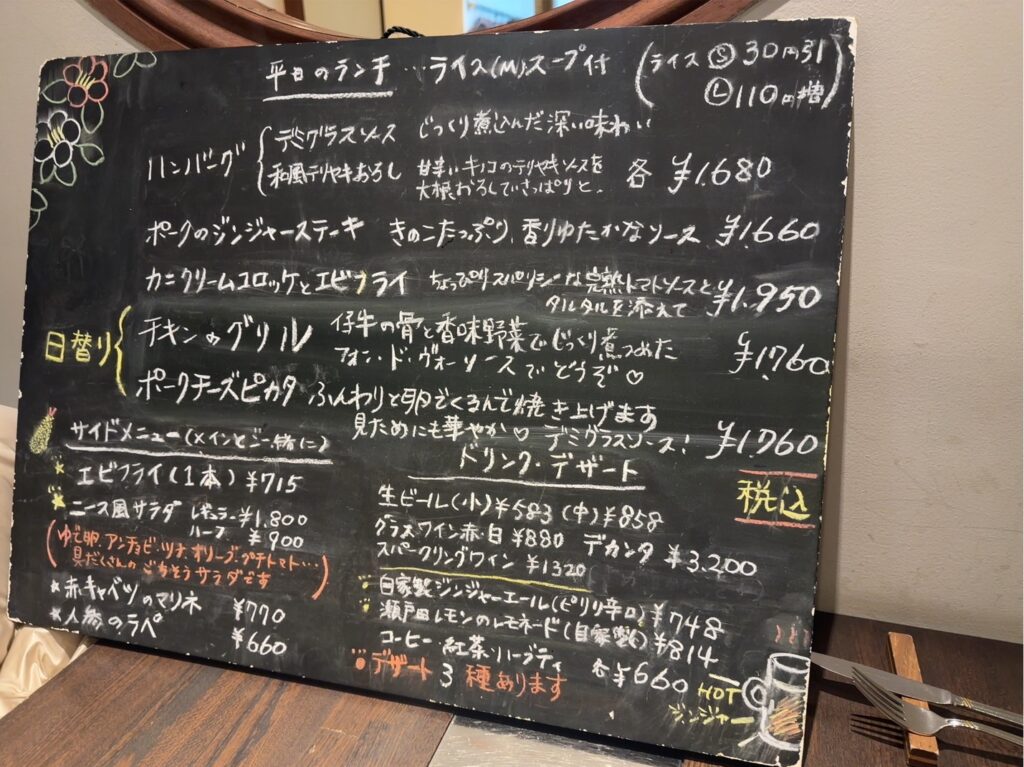 平日のランチ…ライス(M)、スープ付 (ライス Ⓢ 30円引
Ⓛ 110円増)
ハンバーグ { デミグラスソース じっくり煮込んだ深い味わい
和風テリヤキおろし 甘辛いキノコのテリヤキソースを
大根おろしでさっぱりと、 各 ¥1.680
ポークのジンジャーステーキ きのこたっぷり、香りゆたかなソース ¥1.660
カニクリームコロッケとエビフライ ちょっぴりスパイシーな完熟トマトソースと
タルタルを添えて ¥1.950
日替り {
チキンのグリル 仔牛の骨と香味野菜でじっくり煮つめた
フォン・ド・ヴォーソースでどうぞ♡ ¥1.760
ポークチーズピカタ ふんわりと卵でくるんで焼き上げます
見ためにも華やか♡ デミグラスソース! ¥1.760
サイドメニュー(メインとご一緒に)
エビフライ(1本) ¥715
ニース風サラダ レギュラー ¥1.800
ハーフ ¥900
(ゆで卵、アンチョビ・ツナ、オリーブ、プチトマト…
具だくさんのごちそうサラダです)
*赤キャベツのマリネ ¥770
*人参のラペ ¥660
ドリンク・デザート
税込
生ビール(小)¥583 (中)¥858
グラスワイン赤・白 ¥880 デカンタ ¥3.200
スパークリングワイン ¥1320
自家製ジンジャーエール(ピリリ辛口) ¥748
瀬戸田レモンのレモネード(自家製) ¥814
コーヒー 紅茶・ハーブティ 各¥660
デザート 3種あります
HOT
ジンジャー